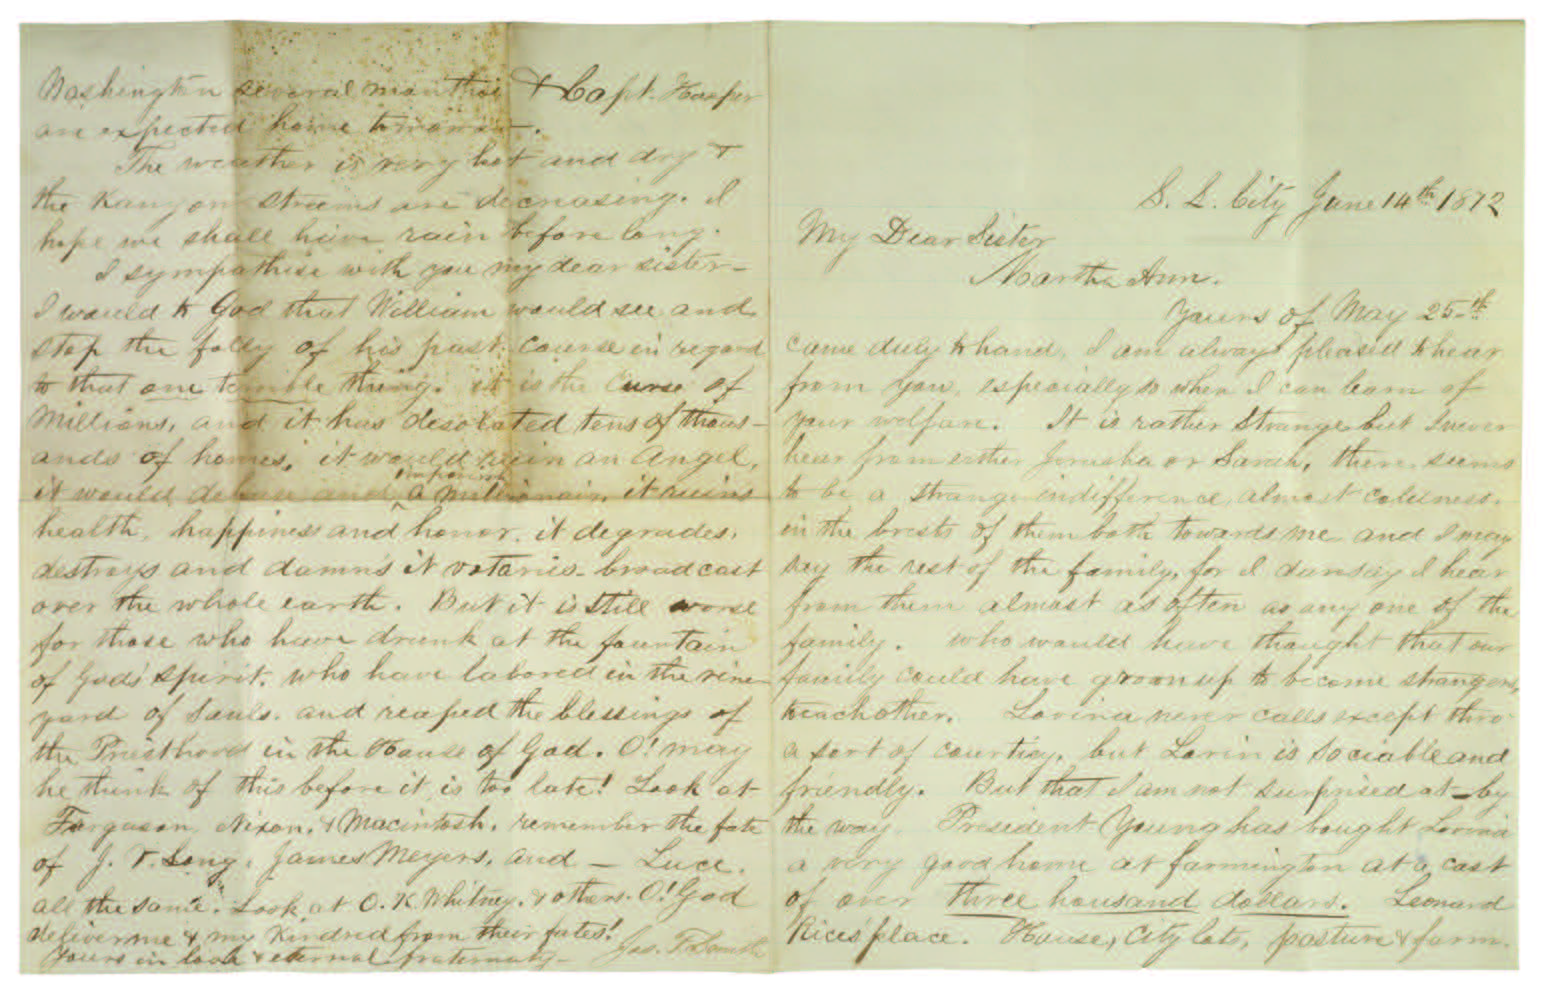 S. L. City June 14th 1872
My Dear Sister
Martha Ann.
Yours of May 25th
came duly to hand, I am always pleased to hear
from you, especially so when I can learn of
your welfare. It is rather strange but I never
hear from either Jerusha or Sarah, there seems
to be a strange indifference, almost coldness.
in the brests of them both towards me and I may
say the rest of the family, for I daresay I hear
from them almost as often as any one of the
family. who would have thought that our
family could have grown up to become strangers,
to each other. Lovina never calls except thro
a sort of courtisy, but Lorin is sociable and
friendly. But that I am not surprised at—by
the way. President Young has bought Lovina
a very good home at farmington at a cost
of over three housand dollars. Leonard
Rices place. House, City lots, pasture & farm.
Washington several months & Capt. Hooper
are expected home tomorrow—.
The weather is very hot and dry &
the Kanyon streems are decreasing. I
hope we shall have rain before long.
I sympathise with you my dear sister—
I would to God that William would see and
stop the folly of his past course in regard
to that one terrible thing. it is the curse of
Millions, and it has desolated tens of thous-
ands of homes, it would ruin an Angel,
it would debase and impoverish a millionair, it ruins
health, happiness and honor. it degrades,
destroys and damns it votaries—broadcast
over the whole earth. But it is still worse
for those who have drunk at the fountain
of God's spirit, who have labored in the vine
yard of Souls. and reaped the blessings of
the Priesthood in the House of God. O! may
he think of this before it is too late! Look at
Furguson, Nixon, & Macintosh. remember the fate
of J. V. Long, James Meyers, and — Luce.
all the same. Look at O. K. Whitney. & others. O! God
deliver me & my Kindred from their fates!
Yours in love & eternal fraternity— Jos. F. Smith